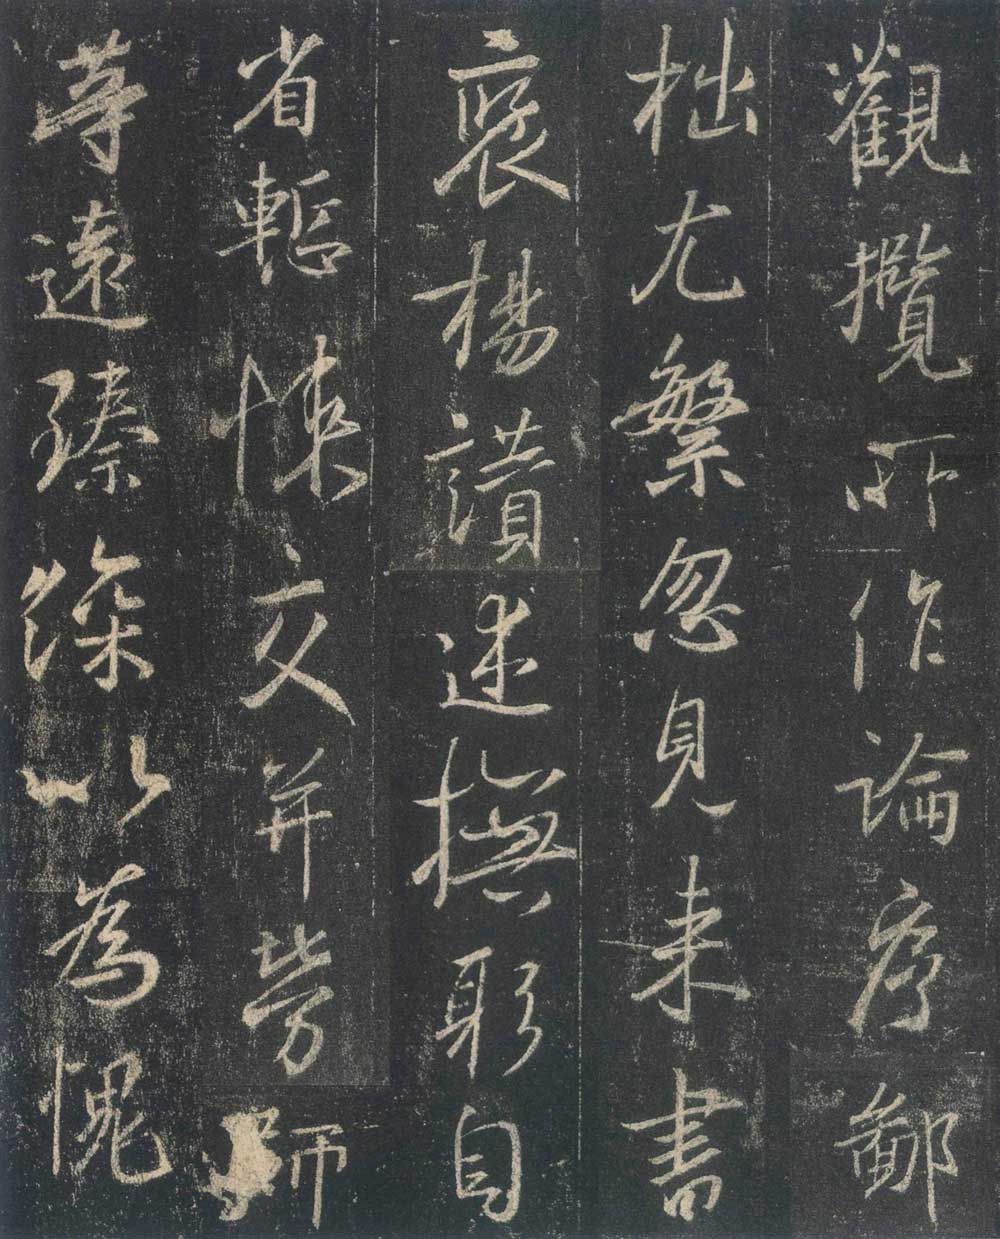 觀攬所作論序鄙
拙尤繁忽見來書
褒揚讃述撫躬自
省慙悚交并勞師
等遠臻深以為愧